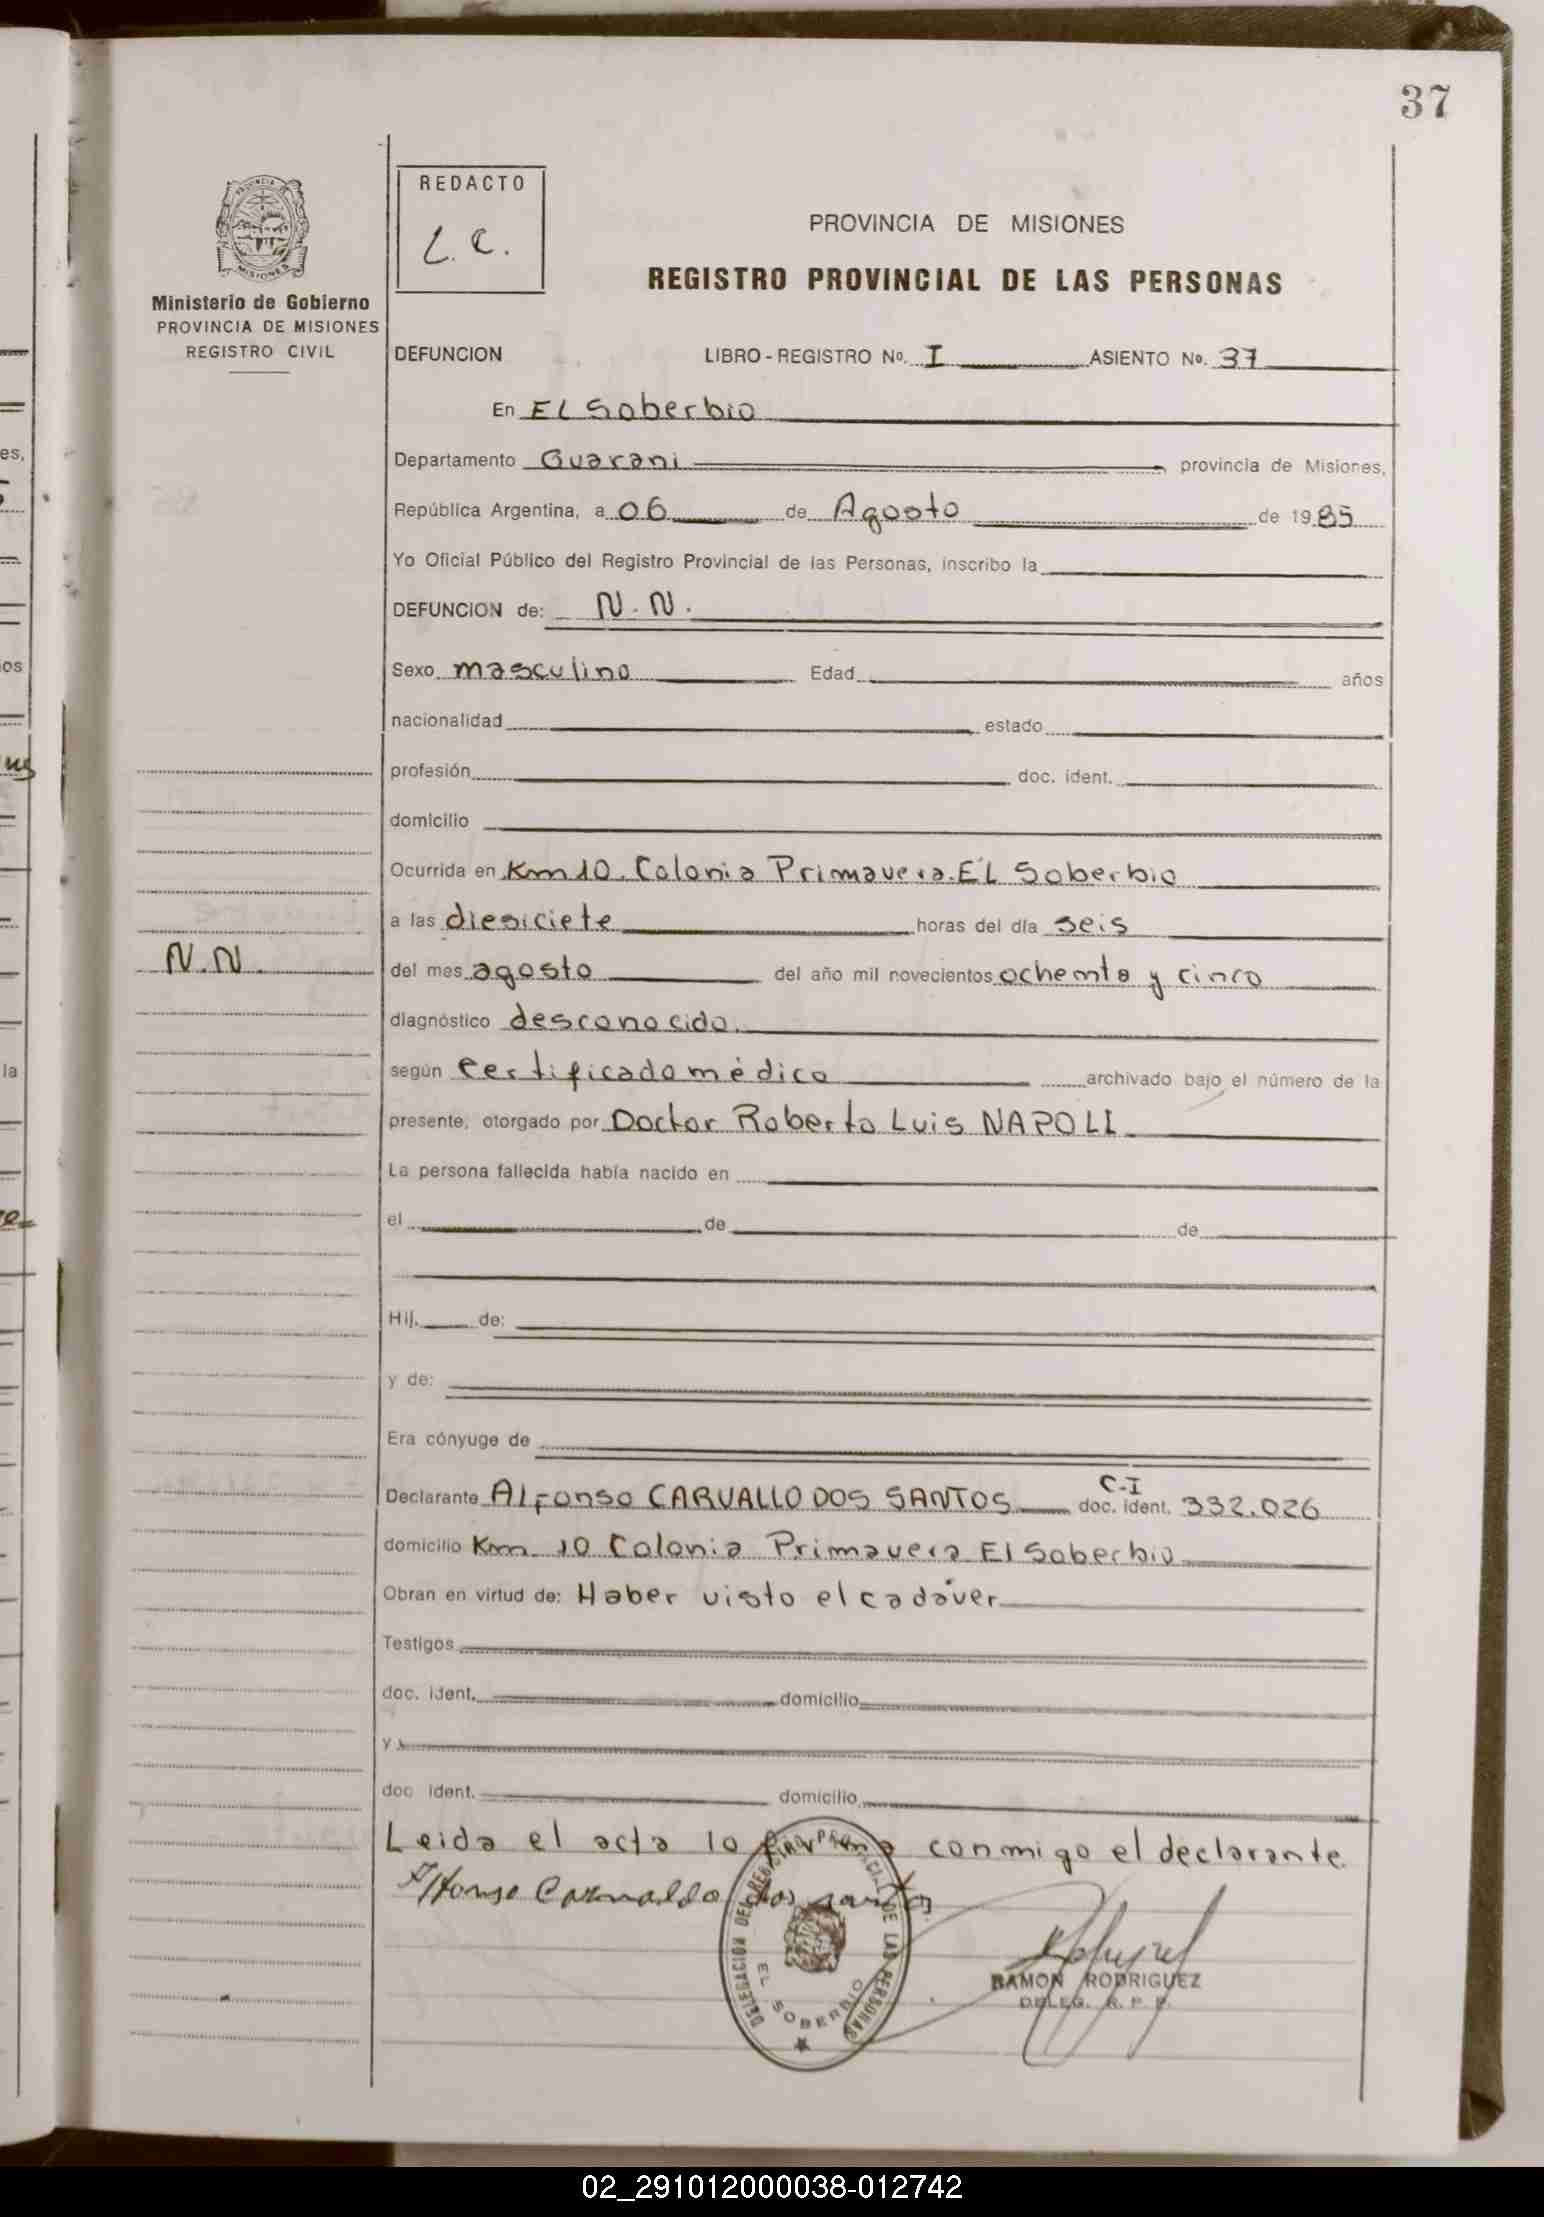 37
REDACTO
L.C.
PROVINCIA DE MISIONES
REGISTRO PROVINCIAL DE LAS PERSONAS
MISIONES
Ministerio de Gobierno
PROVINCIA DE MISIONES
REGISTRO CIVIL
DEFUNCION LIBRO - REGISTRO Nº. I ASIENTO Nº. 37
En EL Soberbio
Departamento Guarani provincia de Misiones,
República Argentina, a 06 de Agosto de 1985
Yo Oficial Público del Registro Provincial de las Personas, inscribo la
DEFUNCION de: N.N.
Sexo masculino Edad años
nacionalidad estado
profesión doc. ident.
domicilio
Ocurrida en Km 10. Colonia Primavera. EL Soberbio
a las diesiciete horas del día seis
N.N.
del mes agosto del año mil novecientos ochenta y cinco
diagnóstico desconocido.
según Certificado médico archivado bajo el número de la
presente, otorgado por Doctor Roberto Luis NAPOLI
La persona fallecida había nacido en
el de de
Hij. de:
y de:
Era cónyuge de
Declarante Alfonso CARVALLO DOS SANTOS C-I doc. ident. 332.026
domicilio Km 10 Colonia Primavera El Soberbio
Obran en virtud de: Haber visto el cadáver
Testigos
doc. ident. domicilio
y
doc ident. domicilio
Leida el acta lo firma conmigo el declarante.
Alfonso Carvaldo dos santos
DELEGACION DEL REGISTRO PROVINCIAL DE LAS PERSONAS
EL SOBERBIO
RAMON RODRIGUEZ
DELEG. R. P. P.
02_291012000038-012742